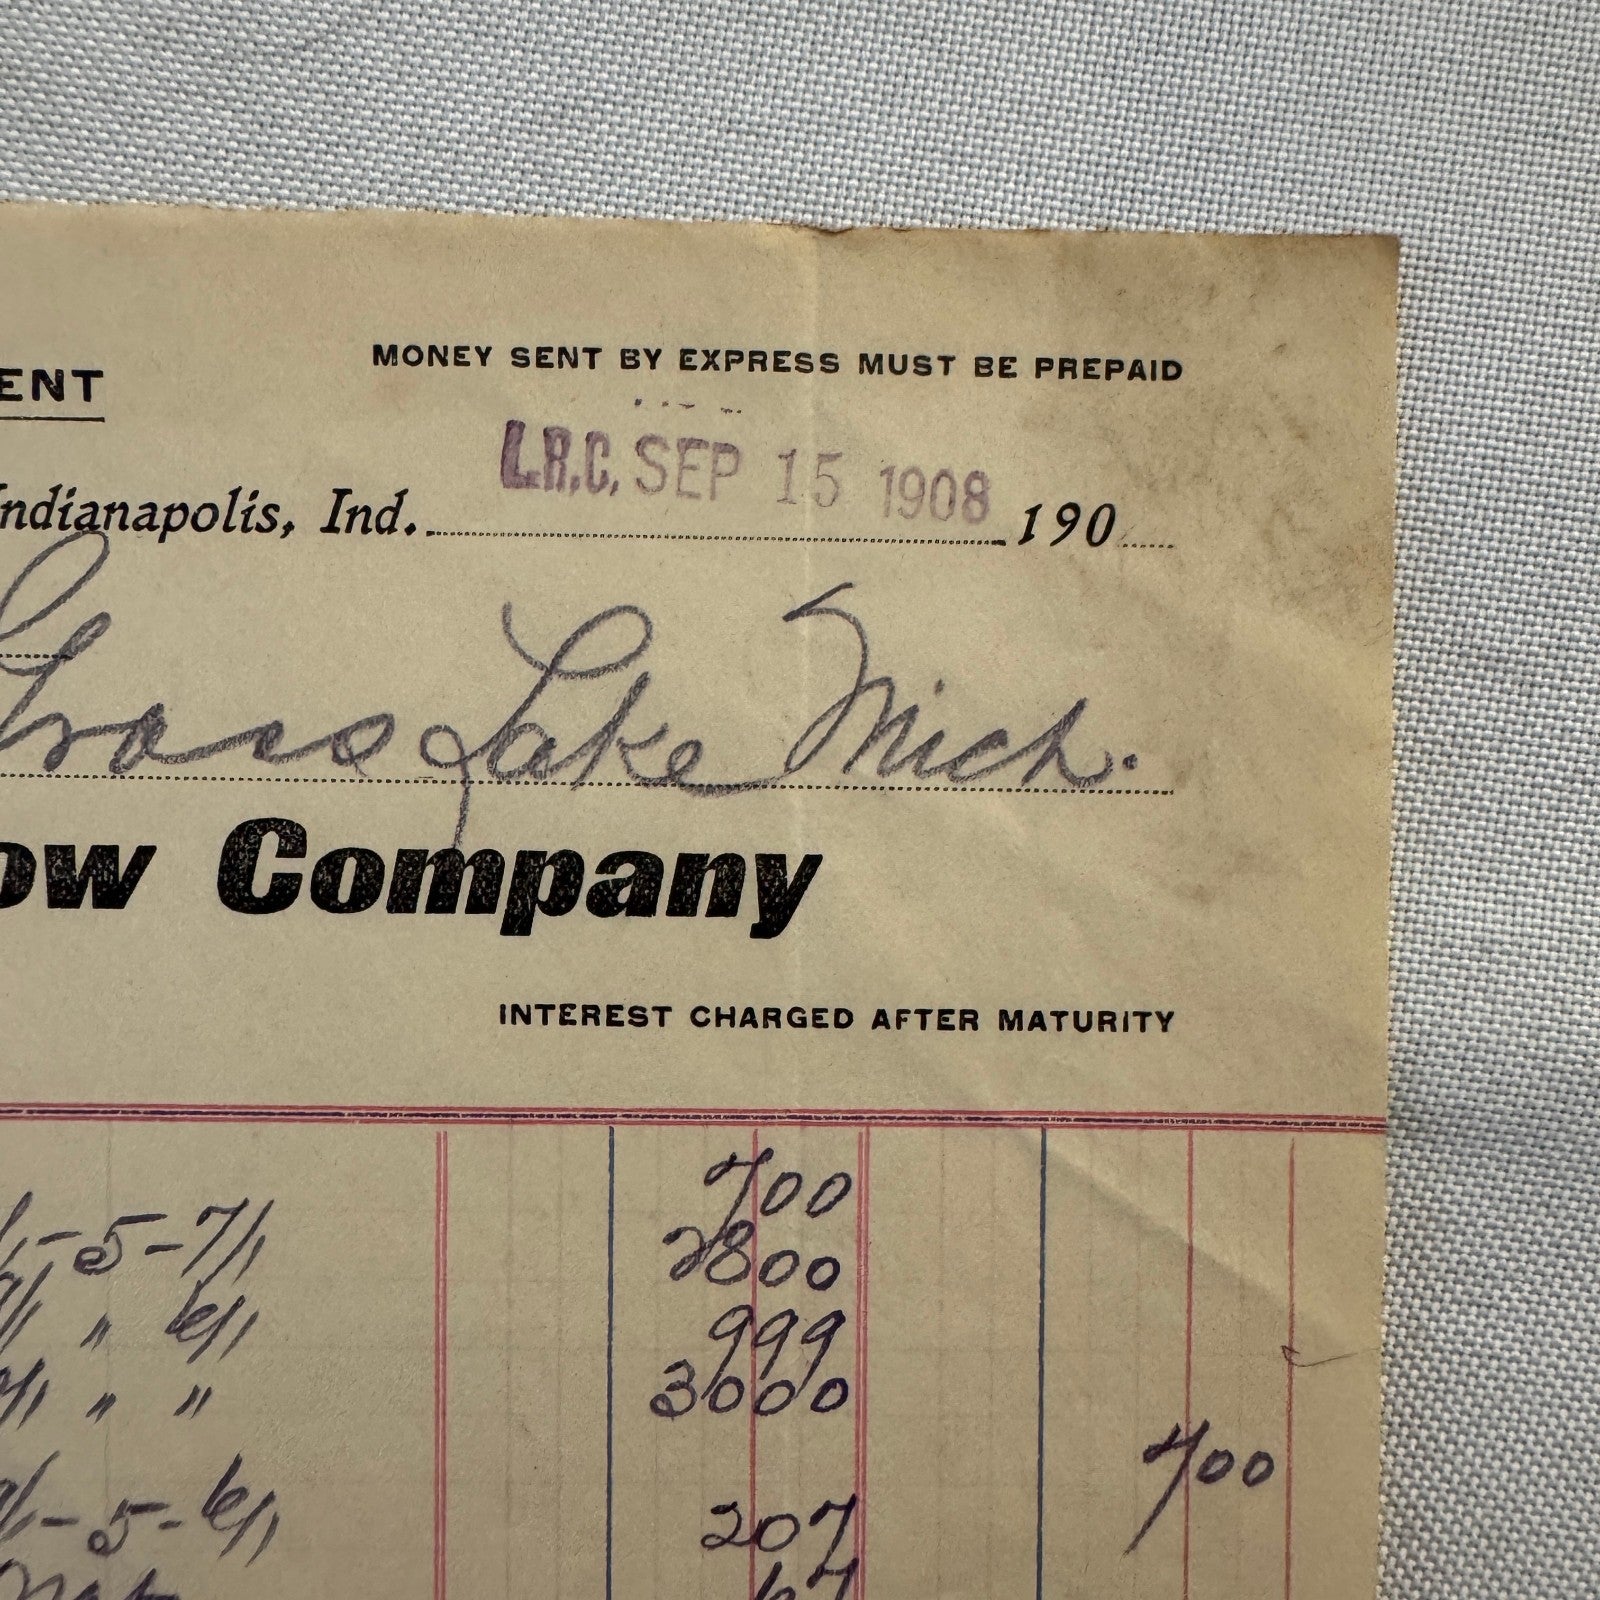 ENT
MONEY SENT BY EXPRESS MUST BE PREPAID
L.R.C. SEP 15 1908
Indianapolis, Ind. 190
Grass Lake Mich.
ow Company
INTEREST CHARGED AFTER MATURITY
700
-5-7/1 2800
" 6/1 999
" " 3000
700
-5-6/1 207